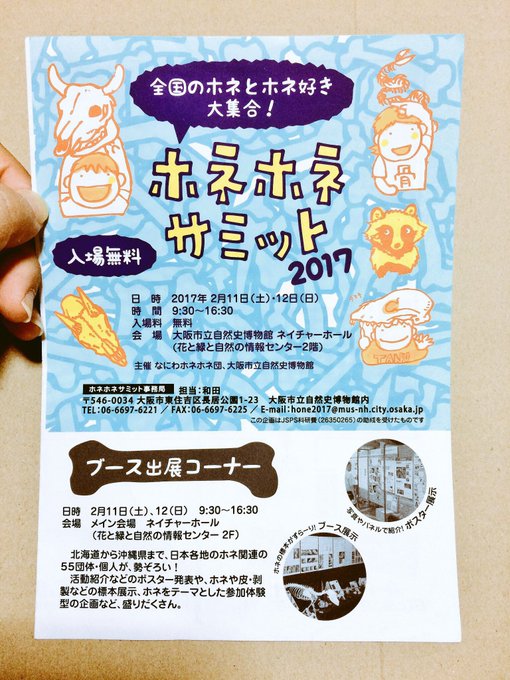 全国のホネとホネ好き
大集合!
ホネホネ
サミット
2017
骨
入場無料
日 時 2017年 2月11日(土)・12日(日)
時 間 9:30〜16:30
入場料 無料
会 場 大阪市立自然史博物館 ネイチャーホール
(花と緑と自然の情報センター2階)
主催 なにわホネホネ団、大阪市立自然史博物館
ホネホネサミット事務局 担当:和田
〒546-0034 大阪市東住吉区長居公園1-23 大阪市立自然史博物館内
TEL:06-6697-6221 / FAX:06-6697-6225 / E-mail:hone2017@mus-nh.city.osaka.jp
この企画はJSPS科研費(26350265)の助成を受けたものです
ブース出展コーナー
日時 2月11日(土)、12(日) 9:30〜16:30
会場 メイン会場 ネイチャーホール
(花と緑と自然の情報センター 2F)
北海道から沖縄県まで、日本各地のホネ関連の
55団体・個人が、勢ぞろい!
活動紹介などのポスター発表や、ホネや皮・剥
製などの標本展示、ホネをテーマとした参加体験
型の企画など、盛りだくさん。
写真やパネルで紹介! ポスター展示
ホネの標本がずらーり! ブース展示